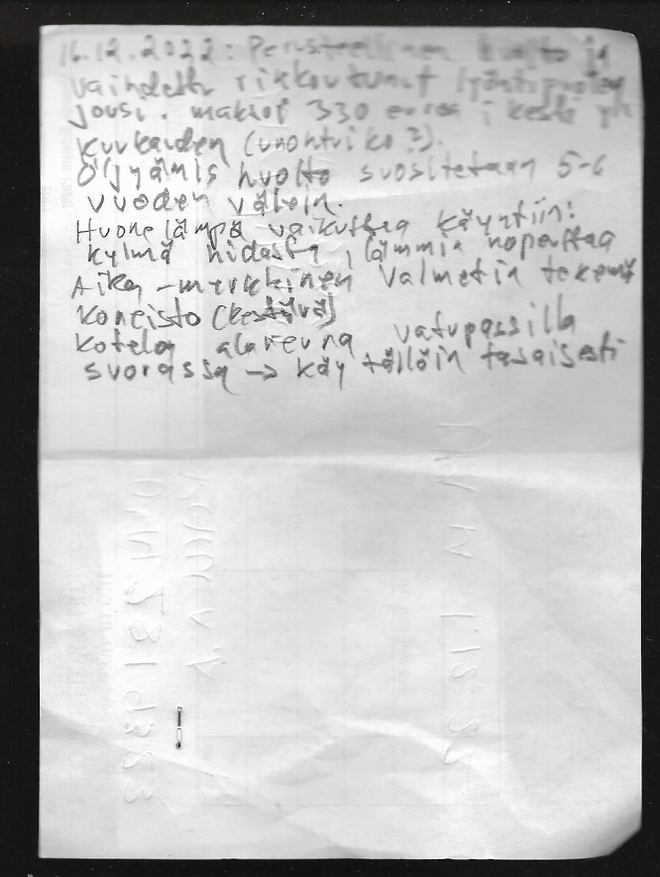 16.12.2022: Perusteellinen huolto ja
vaihdettu rikkoutunut lyöntipuolen
jousi. maksoi 330 euroa, kesti yli
kuukauden (unohtuiko?).
Öljyämis huolto suositetaan 5-6
vuoden välein.
Huonelämpö vaikuttaa käyntiin:
kylmä hidasta, lämmin nopeuttaa
Aika-merkkinen Valmetin tekemä
koneisto (kestävä)
kotelon alareuna vatupassilla
suorassa → käy tällöin tasaisesti